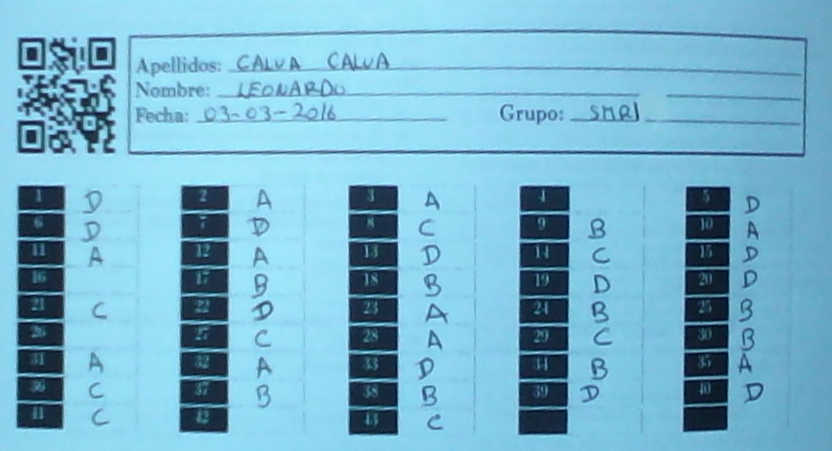 Apellidos: CALVA CALVA
Nombre: LEONARDO
Fecha: 03-03-2016 Grupo: SMR1
1 D 2 A 3 A 4 5 D
6 D 7 D 8 C 9 B 10 A
11 A 12 A 13 D 14 C 15 D
16 17 B 18 B 19 D 20 D
21 C 22 D 23 A 24 B 25 B
26 27 C 28 A 29 C 30 B
31 A 32 A 33 D 34 B 35 A
36 C 37 B 38 B 39 D 40 D
41 C 42 43 C